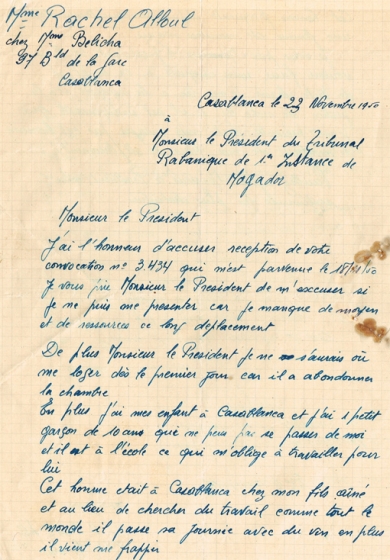 Mme Rachel Alloul
chez Mme Belicha
97 Bld de la Gare
Casablanca
Casablanca le 23 Novembre 1950
à
Monsieur le Président du Tribunal
Rabanique de 1re Instance de
Mogador
Monsieur le President
J'ai l'honneur d'accuser reception de votre
convocation no 3.434 qui m'est parvenue le 18/11/50
Je vous prie Monsieur le President de m'excuser si
je ne puis me presenter car je manque de moyen
et de ressources ce long deplacement
De plus Monsieur le President je ne saurais où
me loger dès le premier jour car il a abondonner
la chambre
En plus j'ai mes enfant à Casablanca et j'ai 1 petit
garçon de 10 ans que ne peux pas se passer de moi
et il est à l'école ce qui m'oblige à travailler pour
lui
Cet homme etait à Casablanca chez mon fils aîné
et au lieu de chercher du travail comme tout le
monde il passe sa journie avec du vin en plus
il vient me frapper